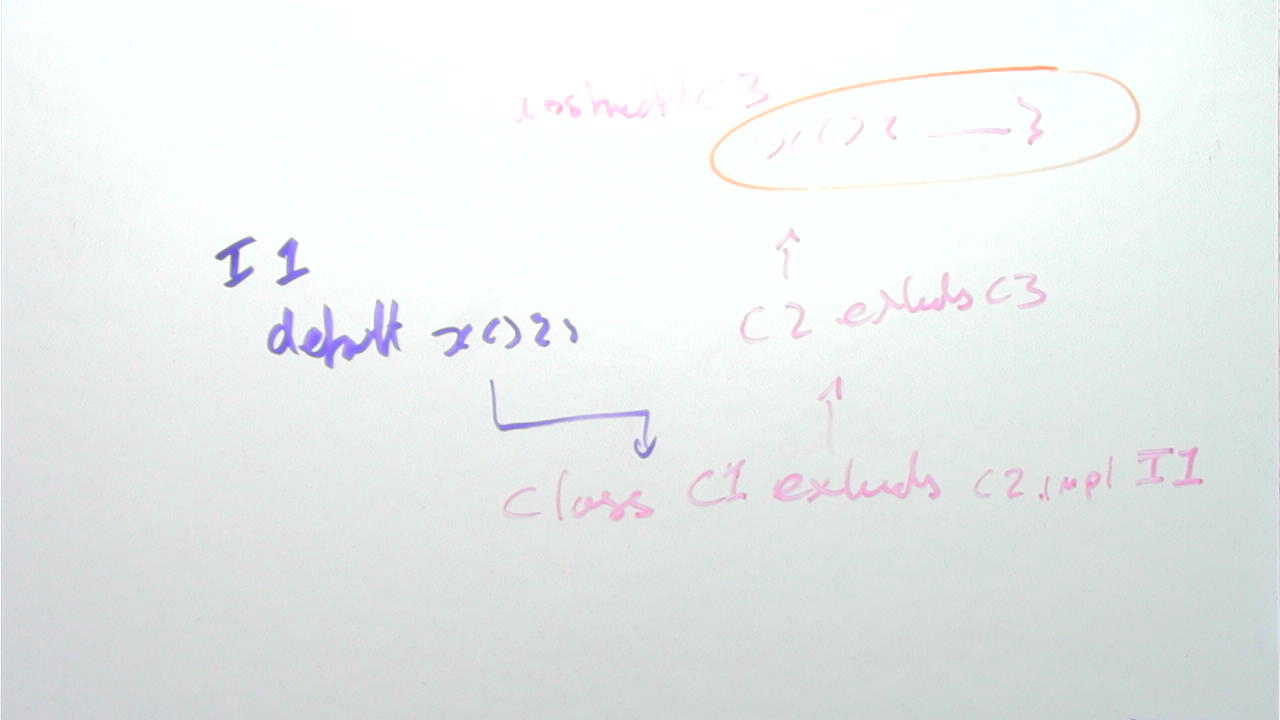 abstract C3
x() { — }
I1
default x() { }
C2 extends C3
class C1 extends C2, impl I1